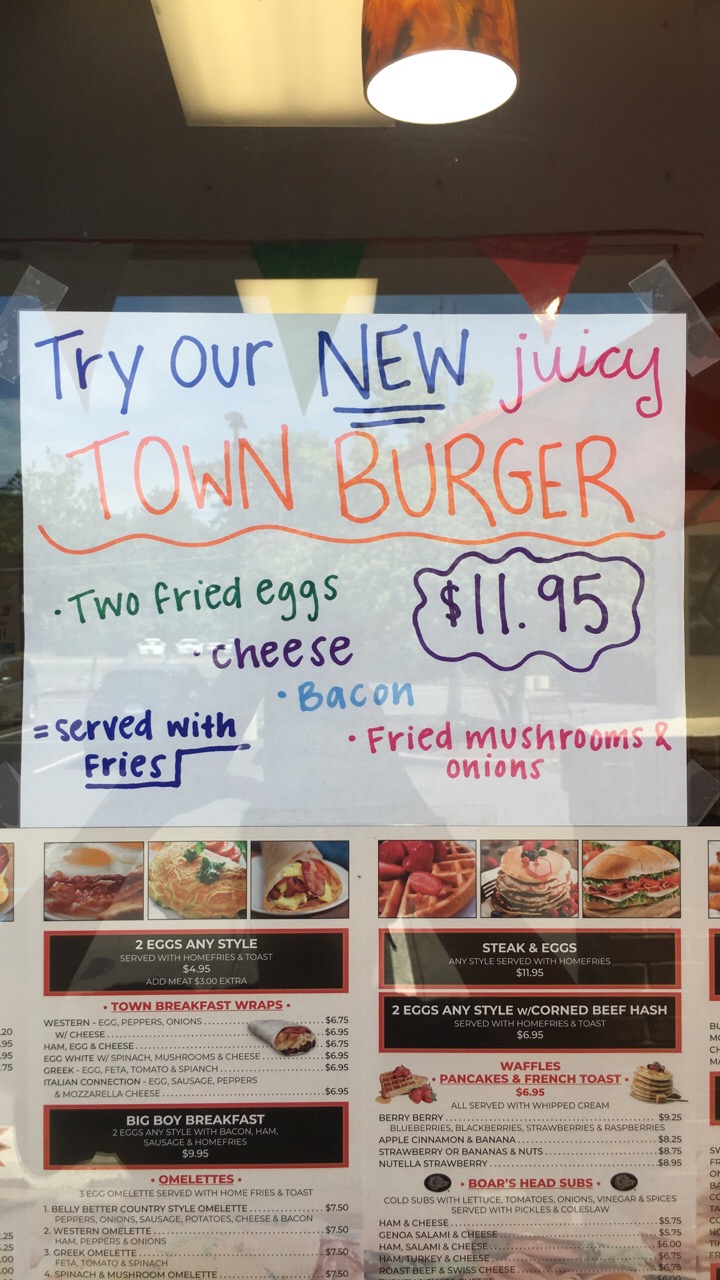 Try Our NEW juicy
TOWN BURGER
• Two fried eggs
$11.95
• cheese
• Bacon
= served with
Fries
• Fried mushrooms &
onions
2 EGGS ANY STYLE
SERVED WITH HOMEFRIES & TOAST
$4.95
ADD MEAT $3.00 EXTRA
• TOWN BREAKFAST WRAPS •
WESTERN - EGG, PEPPERS, ONIONS $6.75
W/ CHEESE $6.95
HAM, EGG & CHEESE $6.75
EGG WHITE W/ SPINACH, MUSHROOMS & CHEESE $6.95
GREEK - EGG, FETA, TOMATO & SPIANCH $6.95
ITALIAN CONNECTION - EGG, SAUSAGE, PEPPERS
& MOZZARELLA CHEESE $6.95
BIG BOY BREAKFAST
2 EGGS ANY STYLE WITH BACON, HAM,
SAUSAGE & HOMEFRIES
$9.95
• OMELETTES •
3 EGG OMELETTE SERVED WITH HOME FRIES & TOAST
1. BELLY BETTER COUNTRY STYLE OMELETTE $7.50
PEPPERS, ONIONS, SAUSAGE, POTATOES, CHEESE & BACON
2. WESTERN OMELETTE $7.50
HAM, PEPPERS & ONIONS
3. GREEK OMELETTE $7.50
FETA, TOMATO & SPINACH
4. SPINACH & MUSHROOM OMELETTE $7.50
STEAK & EGGS
ANY STYLE SERVED WITH HOMEFRIES
$11.95
2 EGGS ANY STYLE w/CORNED BEEF HASH
SERVED WITH HOMEFRIES & TOAST
$6.95
WAFFLES
• PANCAKES & FRENCH TOAST •
$6.95
ALL SERVED WITH WHIPPED CREAM
BERRY BERRY $9.25
BLUEBERRIES, BLACKBERRIES, STRAWBERRIES & RASPBERRIES
APPLE CINNAMON & BANANA $8.25
STRAWBERRY OR BANANAS & NUTS $8.75
NUTELLA STRAWBERRY $8.95
• BOAR'S HEAD SUBS •
COLD SUBS WITH LETTUCE, TOMATOES, ONIONS, VINEGAR & SPICES
SERVED WITH PICKLES & COLESLAW
HAM & CHEESE $5.75
GENOA SALAMI & CHEESE $5.75
HAM, SALAMI & CHEESE $6.00
HAM, TURKEY & CHEESE $6.75
ROAST BEEF & SWISS CHEESE $6.75